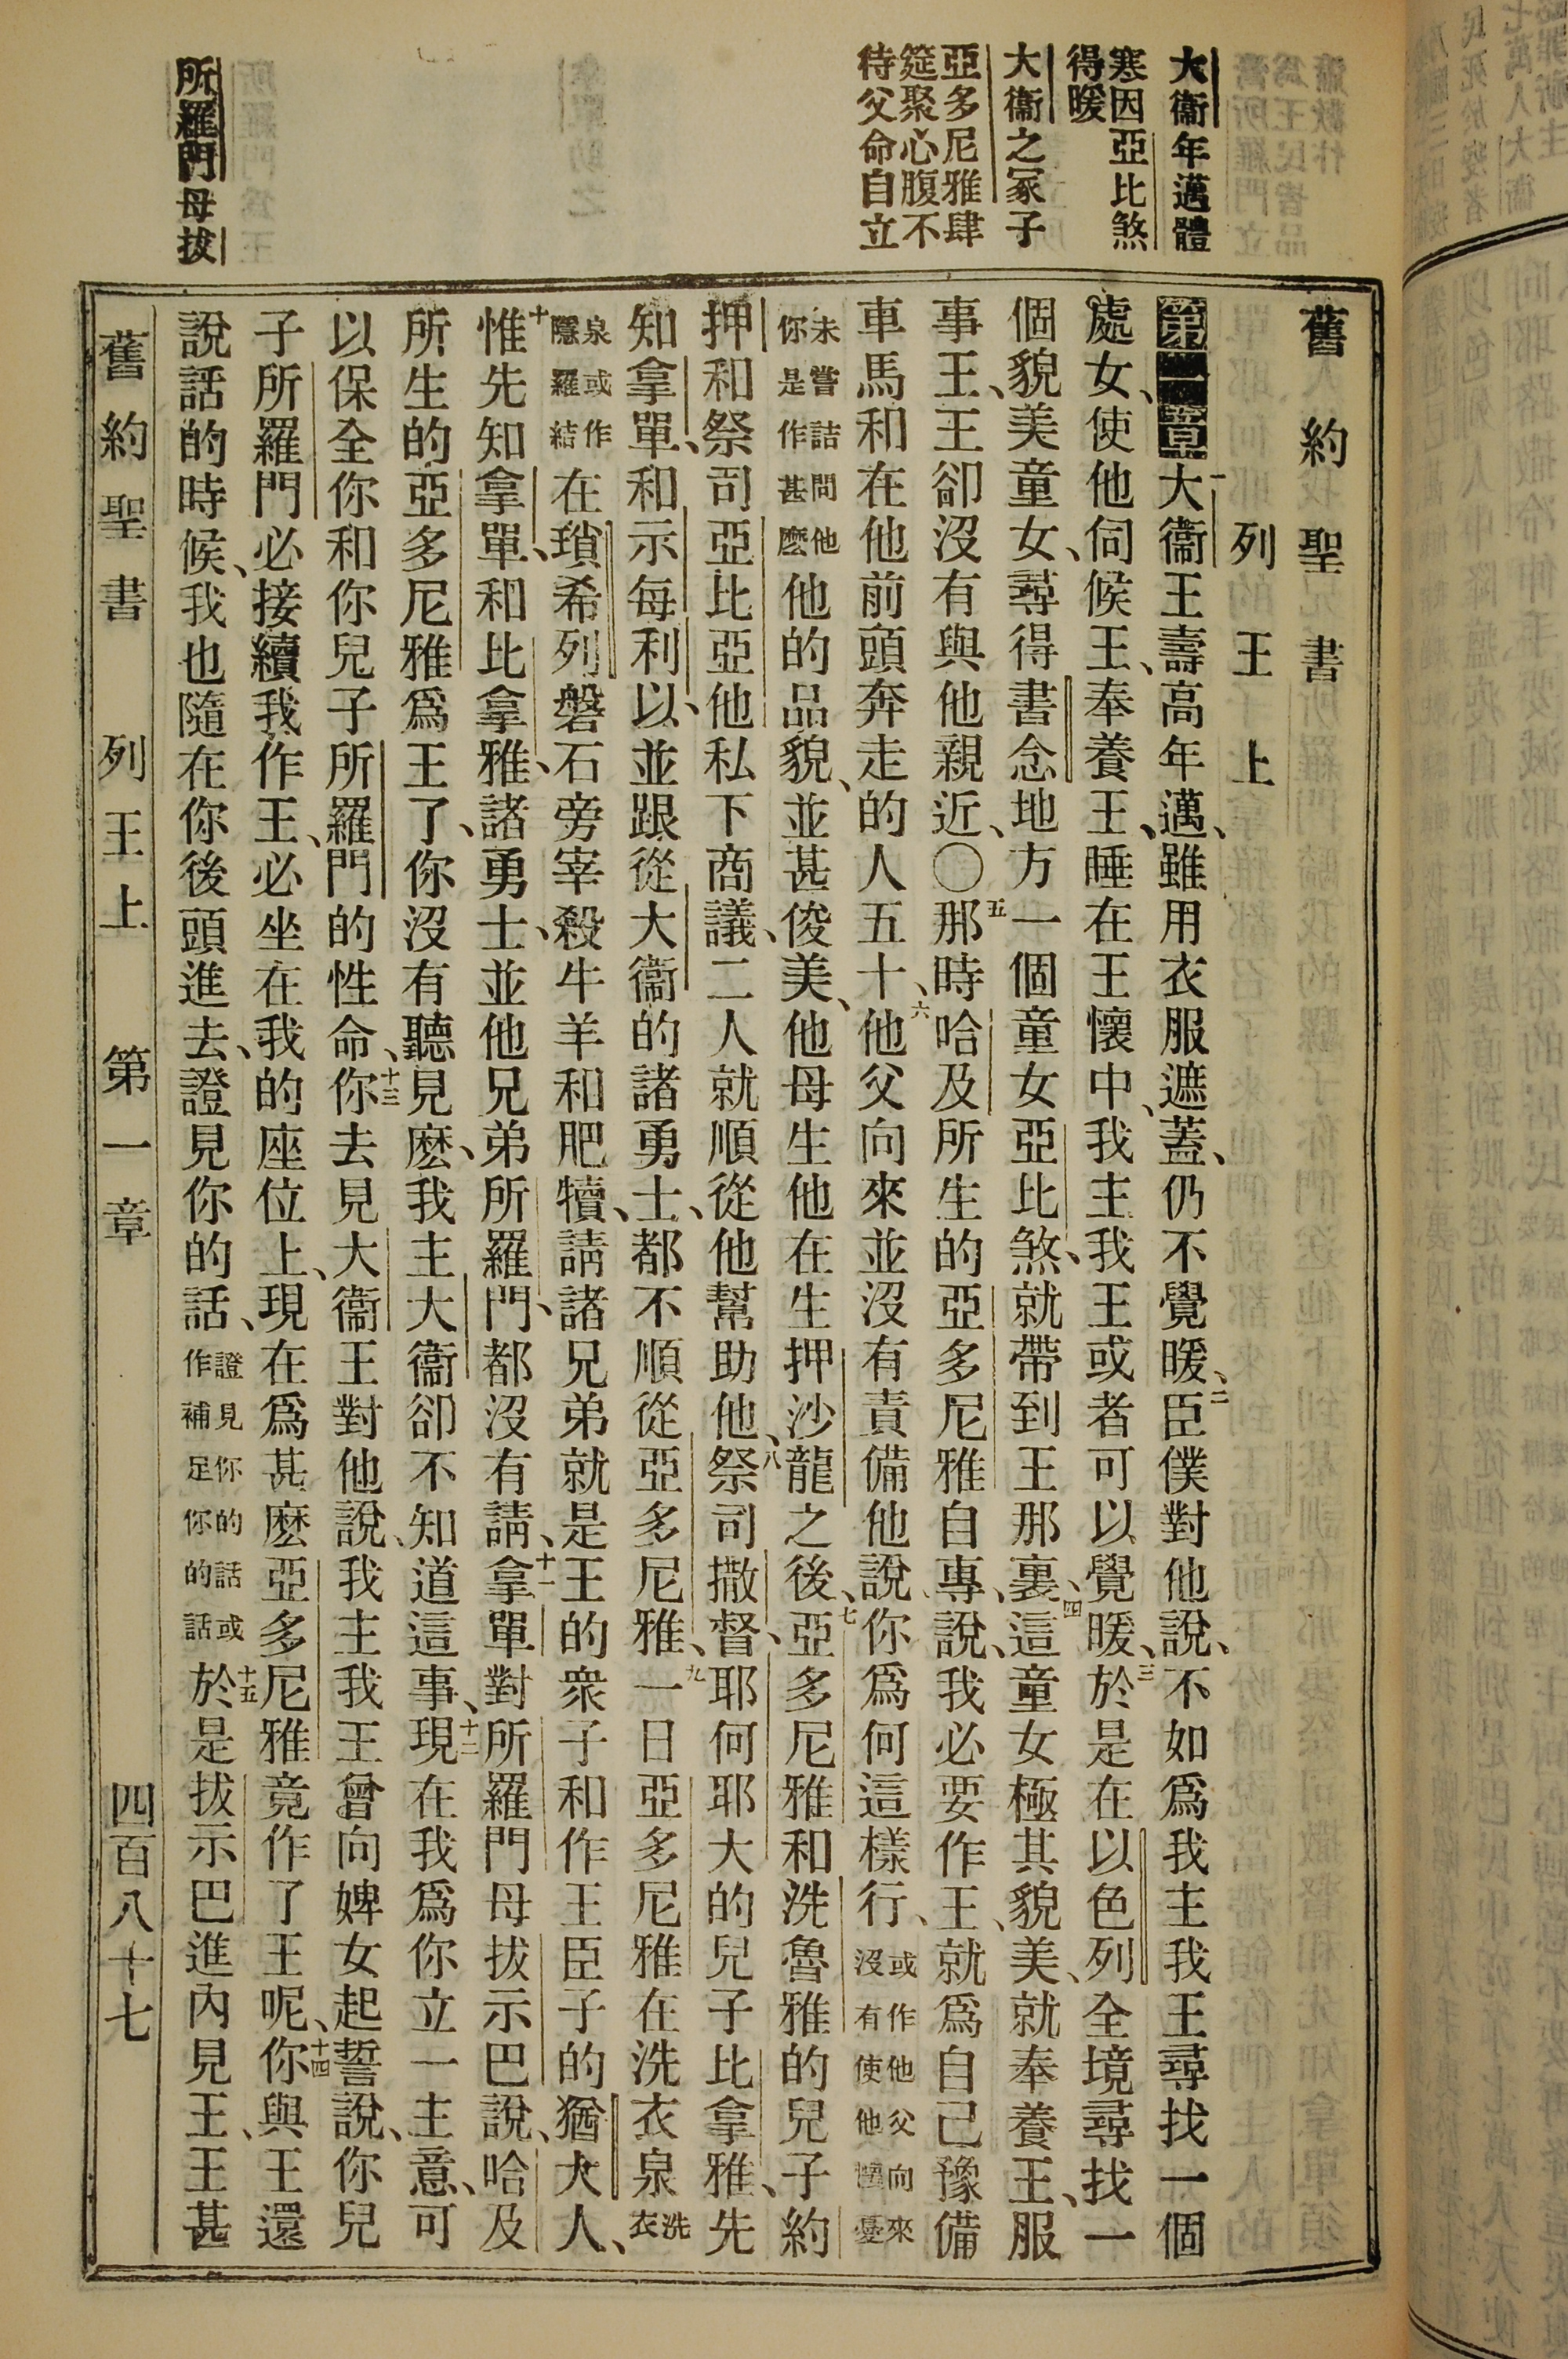 大衞年邁體
寒因亞比煞
得暖
大衞之冢子
亞多尼雅肆
筵聚心腹不
待父命自立
所羅門母拔
舊約聖書
列王上
第一章 一大衞王壽高年邁、雖用衣服遮蓋、仍不覺暖、二臣僕對他說、不如爲我主我王尋找一個
處女、使他伺候王、奉養王、睡在王懷中、我主我王或者可以覺暖、三於是在以色列全境尋找一
個貌美童女、尋得書念地方一個童女亞比煞、就帶到王那裏、四這童女極其貌美、就奉養王、服
事王、王卻沒有與他親近、〇五那時哈及所生的亞多尼雅自專、說、我必要作王、就爲自己豫備
車馬和在他前頭奔走的人五十、六他父向來並沒有責備他說、你爲何這樣行、或作他父向來沒有使他憂
未嘗詰問他你是作甚麽他的品貌、並甚俊美、他母生他在生押沙龍之後、七亞多尼雅和洗魯雅的兒子約
押和祭司亞比亞他私下商議、二人就順從他幫助他、八祭司撒督、耶何耶大的兒子比拿雅、先
知拿單、和示每利以、並跟從大衞的諸勇士、都不順從亞多尼雅、九一日亞多尼雅在洗衣泉洗衣
泉或作隱羅結在瑣希列磐石旁宰殺牛羊和肥犢、請諸兄弟就是王的衆子和作王臣子的猶大人、
十惟先知拿單、和比拿雅、諸勇士、並他兄弟所羅門、都沒有請、十一拿單對所羅門母拔示巴說、哈及
所生的亞多尼雅爲王了、你沒有聽見麽、我主大衞卻不知道這事、十二現在我爲你立一主意、可
以保全你和你兒子所羅門的性命、十三你去見大衞王對他說、我主我王曾向婢女起誓說、你兒
子所羅門必接續我作王、必坐在我的座位上、現在爲甚麽亞多尼雅竟作了王呢、十四你與王還
說話的時候、我也隨在你後頭進去、證見你的話、證見你的話或作補足你的話十五於是拔示巴進內見王、王甚
舊約聖書 列王上 第一章 四百八十七